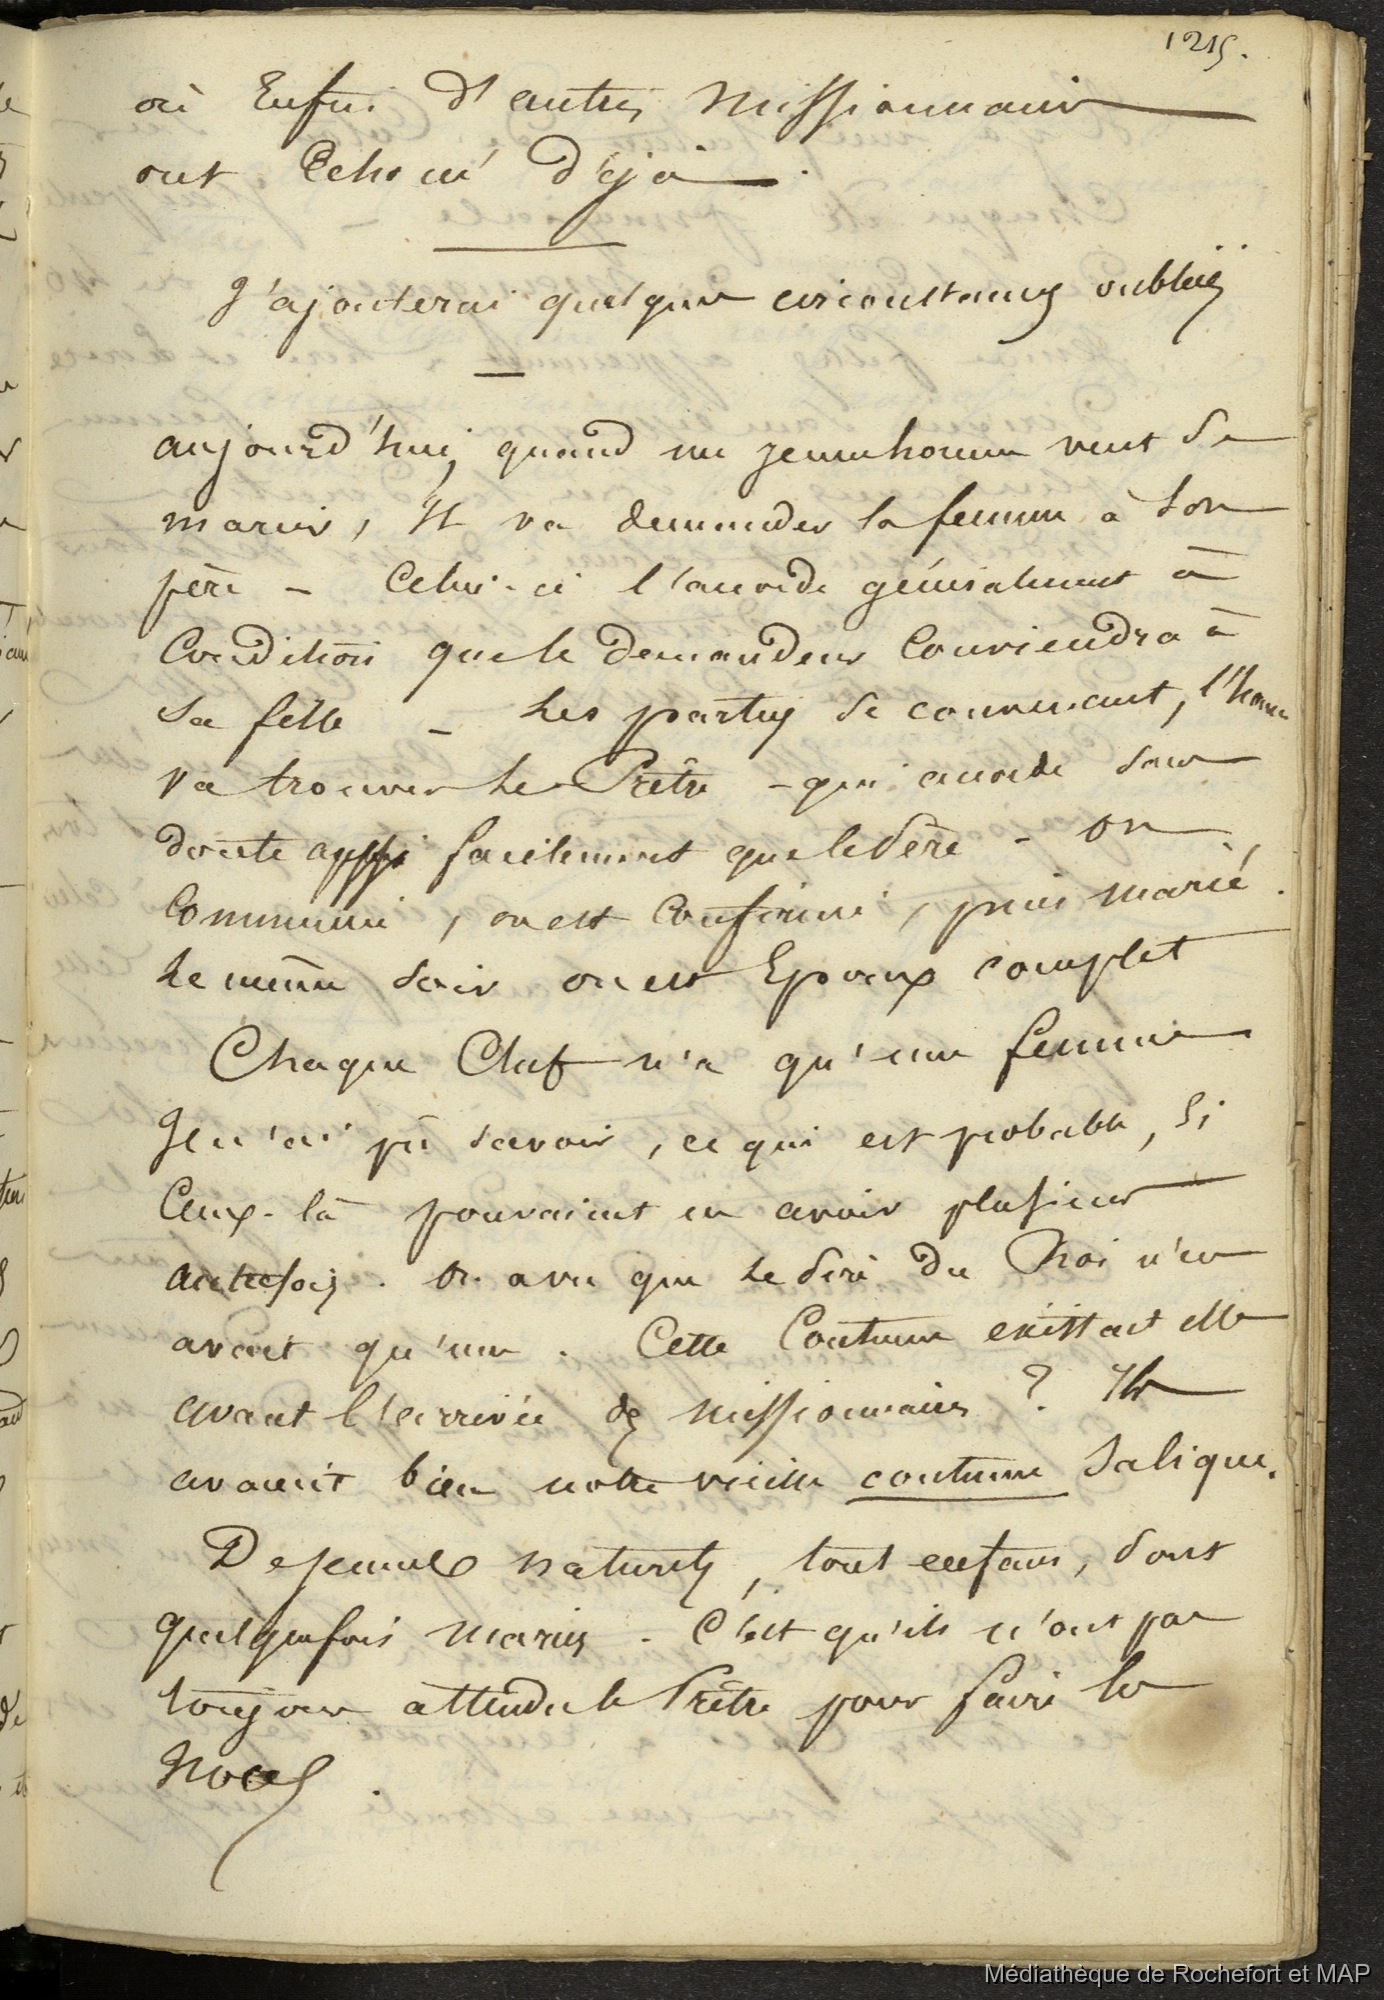 1215.
où Enfin d'autres Missionnaires
ont Echoué déjà.
J'ajouterai quelques circonstances oubliées
aujourd'hui, quand un jeune homme veut se
marier, Il va demander la femme à son
père - Celui-ci l'accorde généralement à
Condition que le demandeur Conviendra à
sa fille - Les parties se convenant, l'homme
va trouver le Prêtre - qui accorde sans
doute aussi facilement que le Père - on
Communie, on est Confirmé, puis marié.
Le même soir on est Epoux complet
Chaque Chef n'a qu'une femme
Je n'ai pû savoir, ce qui est probable, Si
Ceux-là pouvaient en avoir plusieurs
autrefois. On a vu que le Père du Roi n'en
avait qu'une. Cette Coutume existait elle
avant l'arrivée des Missionnaires ? Ils
avaient bien notre vieille coutume Salique.
De jeunes naturels, tout enfans, sont
quelquefois Mariés. C'est qu'ils n'ont pas
toujours attendu le Prêtre pour faire les
Noces.
Médiathèque de Rochefort et MAP